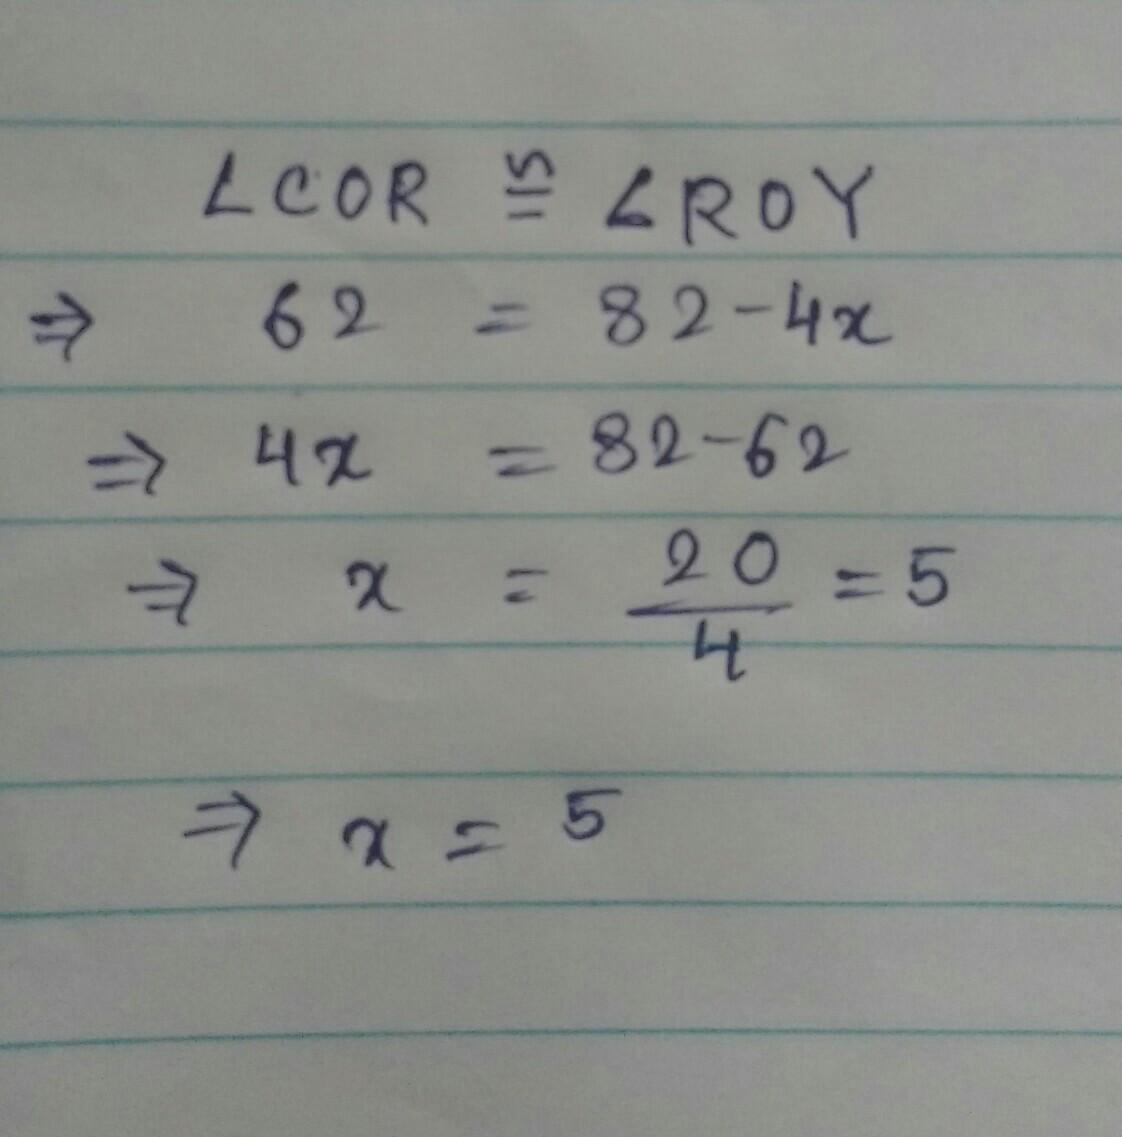 ∠COR ≅ ∠ROY
⇒ 62 = 82-4x
⇒ 4x = 82-62
⇒ x = 20/4 = 5
⇒ x = 5